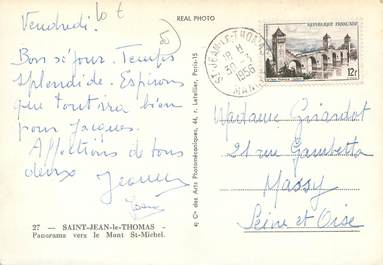 Vendredi 10 t
50
Bon séjour. Temps
splendide. Espérons
que tout ira bien
pour Jacques.
Affections de tous
deux
REAL PHOTO
Cie des Arts Photomécaniques, 44, r. Letellier, Paris-15
27 - SAINT-JEAN-le-THOMAS -
Panorama vers le Mont St-Michel.
ST JEAN-LE-THOMAS
18 H
30-3
1956
MANCHE
REPUBLIQUE FRANÇAISE
12F
Madame Girardot
21 rue Gambetta
Massy
Seine et Oise